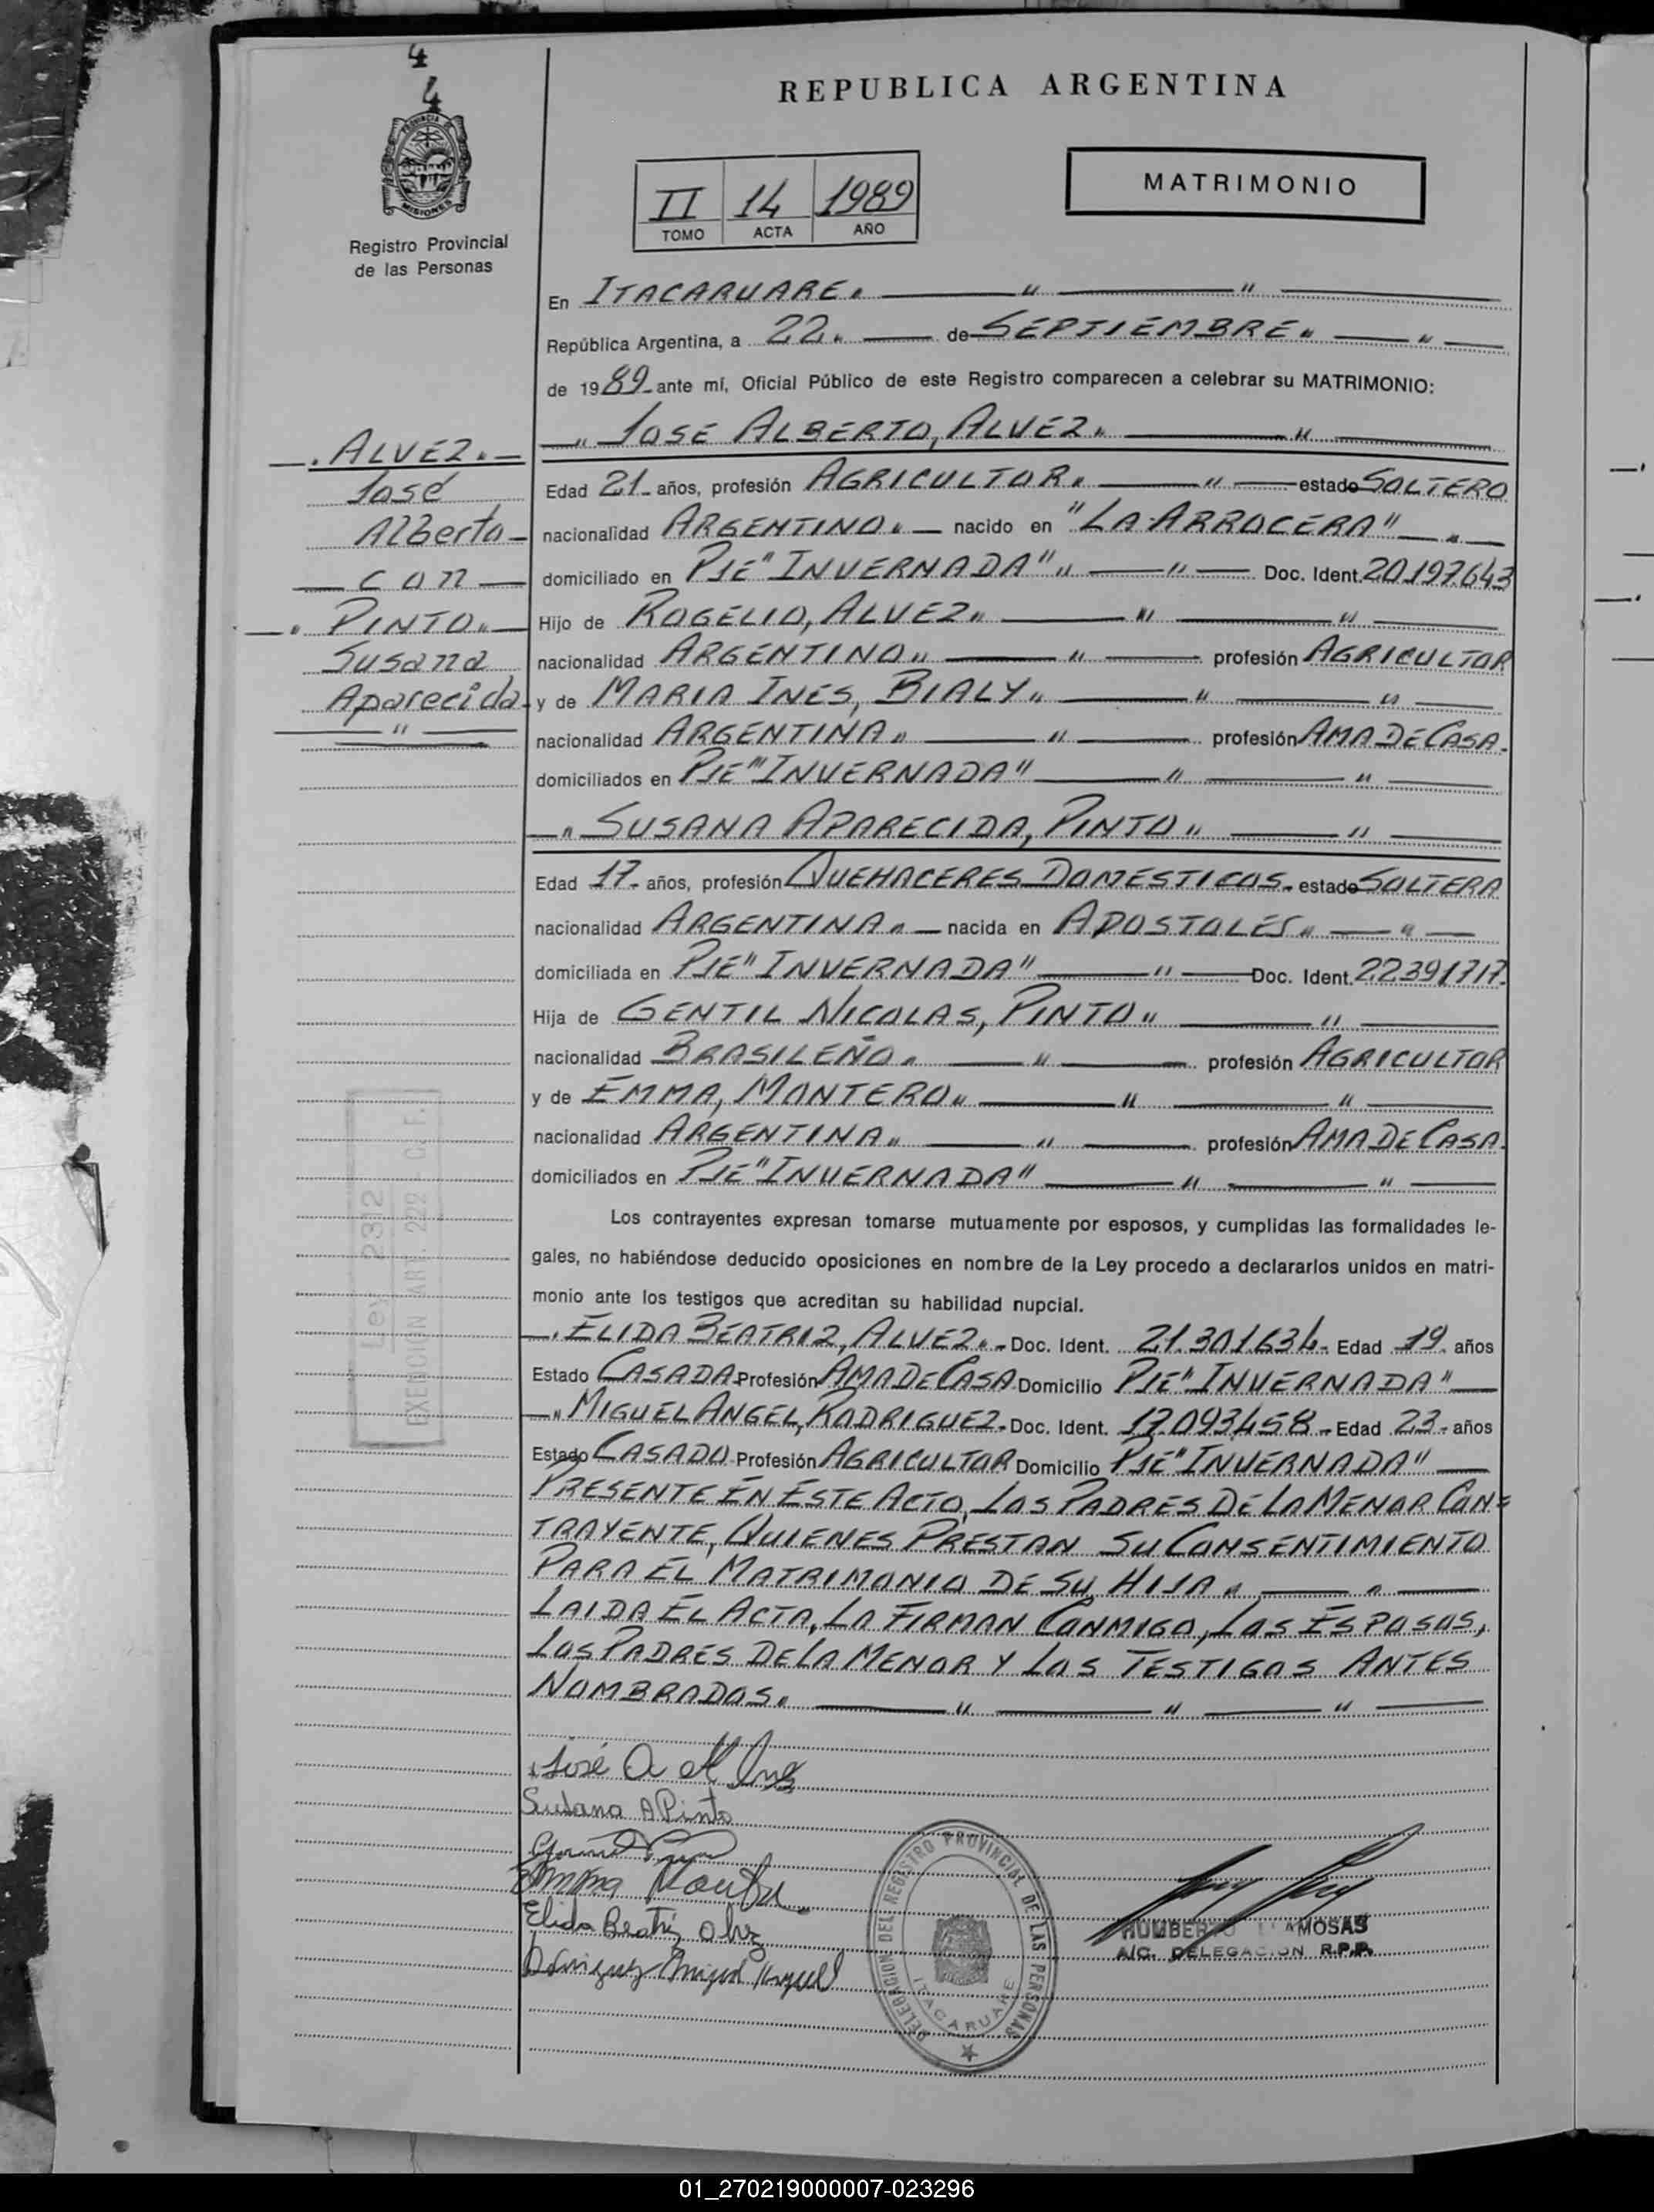 4
4
PROVINCIA DE
MISIONES
Registro Provincial
de las Personas
REPUBLICA ARGENTINA
II 14 1989
TOMO ACTA AÑO
MATRIMONIO
En ITACARUARE. — " — " —
República Argentina, a 22. — de SEPTIEMBRE " — " —
de 1989 ante mí, Oficial Público de este Registro comparecen a celebrar su MATRIMONIO:
—. ALVEZ. —
José
Alberto —
— con —
—. PINTO " —
Susana
Aparecida.
— " —
— " JOSE ALBERTO, ALVEZ " — " —
Edad 21 años, profesión AGRICULTOR " — " — estado SOLTERO
nacionalidad ARGENTINO " — nacido en "LA ARROCERA" — " —
domiciliado en PJE "INVERNADA" " — " — Doc. Ident. 20197643
Hijo de ROGELIO, ALVEZ " — " — " —
nacionalidad ARGENTINO " — " — profesión AGRICULTOR
y de MARIA INES, BIALY " — " — " —
nacionalidad ARGENTINA " — " — profesión AMA DE CASA.
domiciliados en PJE "INVERNADA" — " — " —
— " SUSANA APARECIDA, PINTO " — " —
Edad 17 años, profesión QUEHACERES DOMESTICOS. estado SOLTERA
nacionalidad ARGENTINA " — nacida en APOSTOLES " — " —
domiciliada en PJE "INVERNADA" — " — Doc. Ident. 22391717.
Hija de GENTIL NICOLAS, PINTO " — " —
nacionalidad BRASILEÑO " — " — profesión AGRICULTOR
y de EMMA, MONTERO " — " — " —
nacionalidad ARGENTINA " — " — profesión AMA DE CASA.
domiciliados en PJE "INVERNADA" — " — " —
Los contrayentes expresan tomarse mutuamente por esposos, y cumplidas las formalidades le-
gales, no habiéndose deducido oposiciones en nombre de la Ley procedo a declararlos unidos en matri-
monio ante los testigos que acreditan su habilidad nupcial.
—. ELIDA BEATRIZ, ALVEZ " - Doc. Ident. 21.301.634 - Edad 19. años
Estado CASADA Profesión AMA DE CASA Domicilio PJE "INVERNADA" —
— " MIGUEL ANGEL, RODRIGUEZ - Doc. Ident. 17.093.458 - Edad 23 - años
Estado CASADO Profesión AGRICULTOR Domicilio PJE "INVERNADA" —
PRESENTE EN ESTE ACTO, LOS PADRES DE LA MENOR CON=
TRAYENTE, QUIENES PRESTAN SU CONSENTIMIENTO
PARA EL MATRIMONIO DE SU HIJA " — " —
LAIDA EL ACTA, LA FIRMAN CONMIGO, LOS ESPOSOS,
LOS PADRES DE LA MENOR Y LOS TESTIGOS ANTES
NOMBRADOS. — " — " — " —
Ley 2312
EXENCION ART. 222 C.F.
José A Alvez
Susana A Pinto
Emma
Elida Beatriz Alvez
DELEGACION DEL REGISTRO PROVINCIAL DE LAS PERSONAS
ITACARUARE
AMOSAS
A/C. DELEGACION R.P.P.
01_270219000007-023296